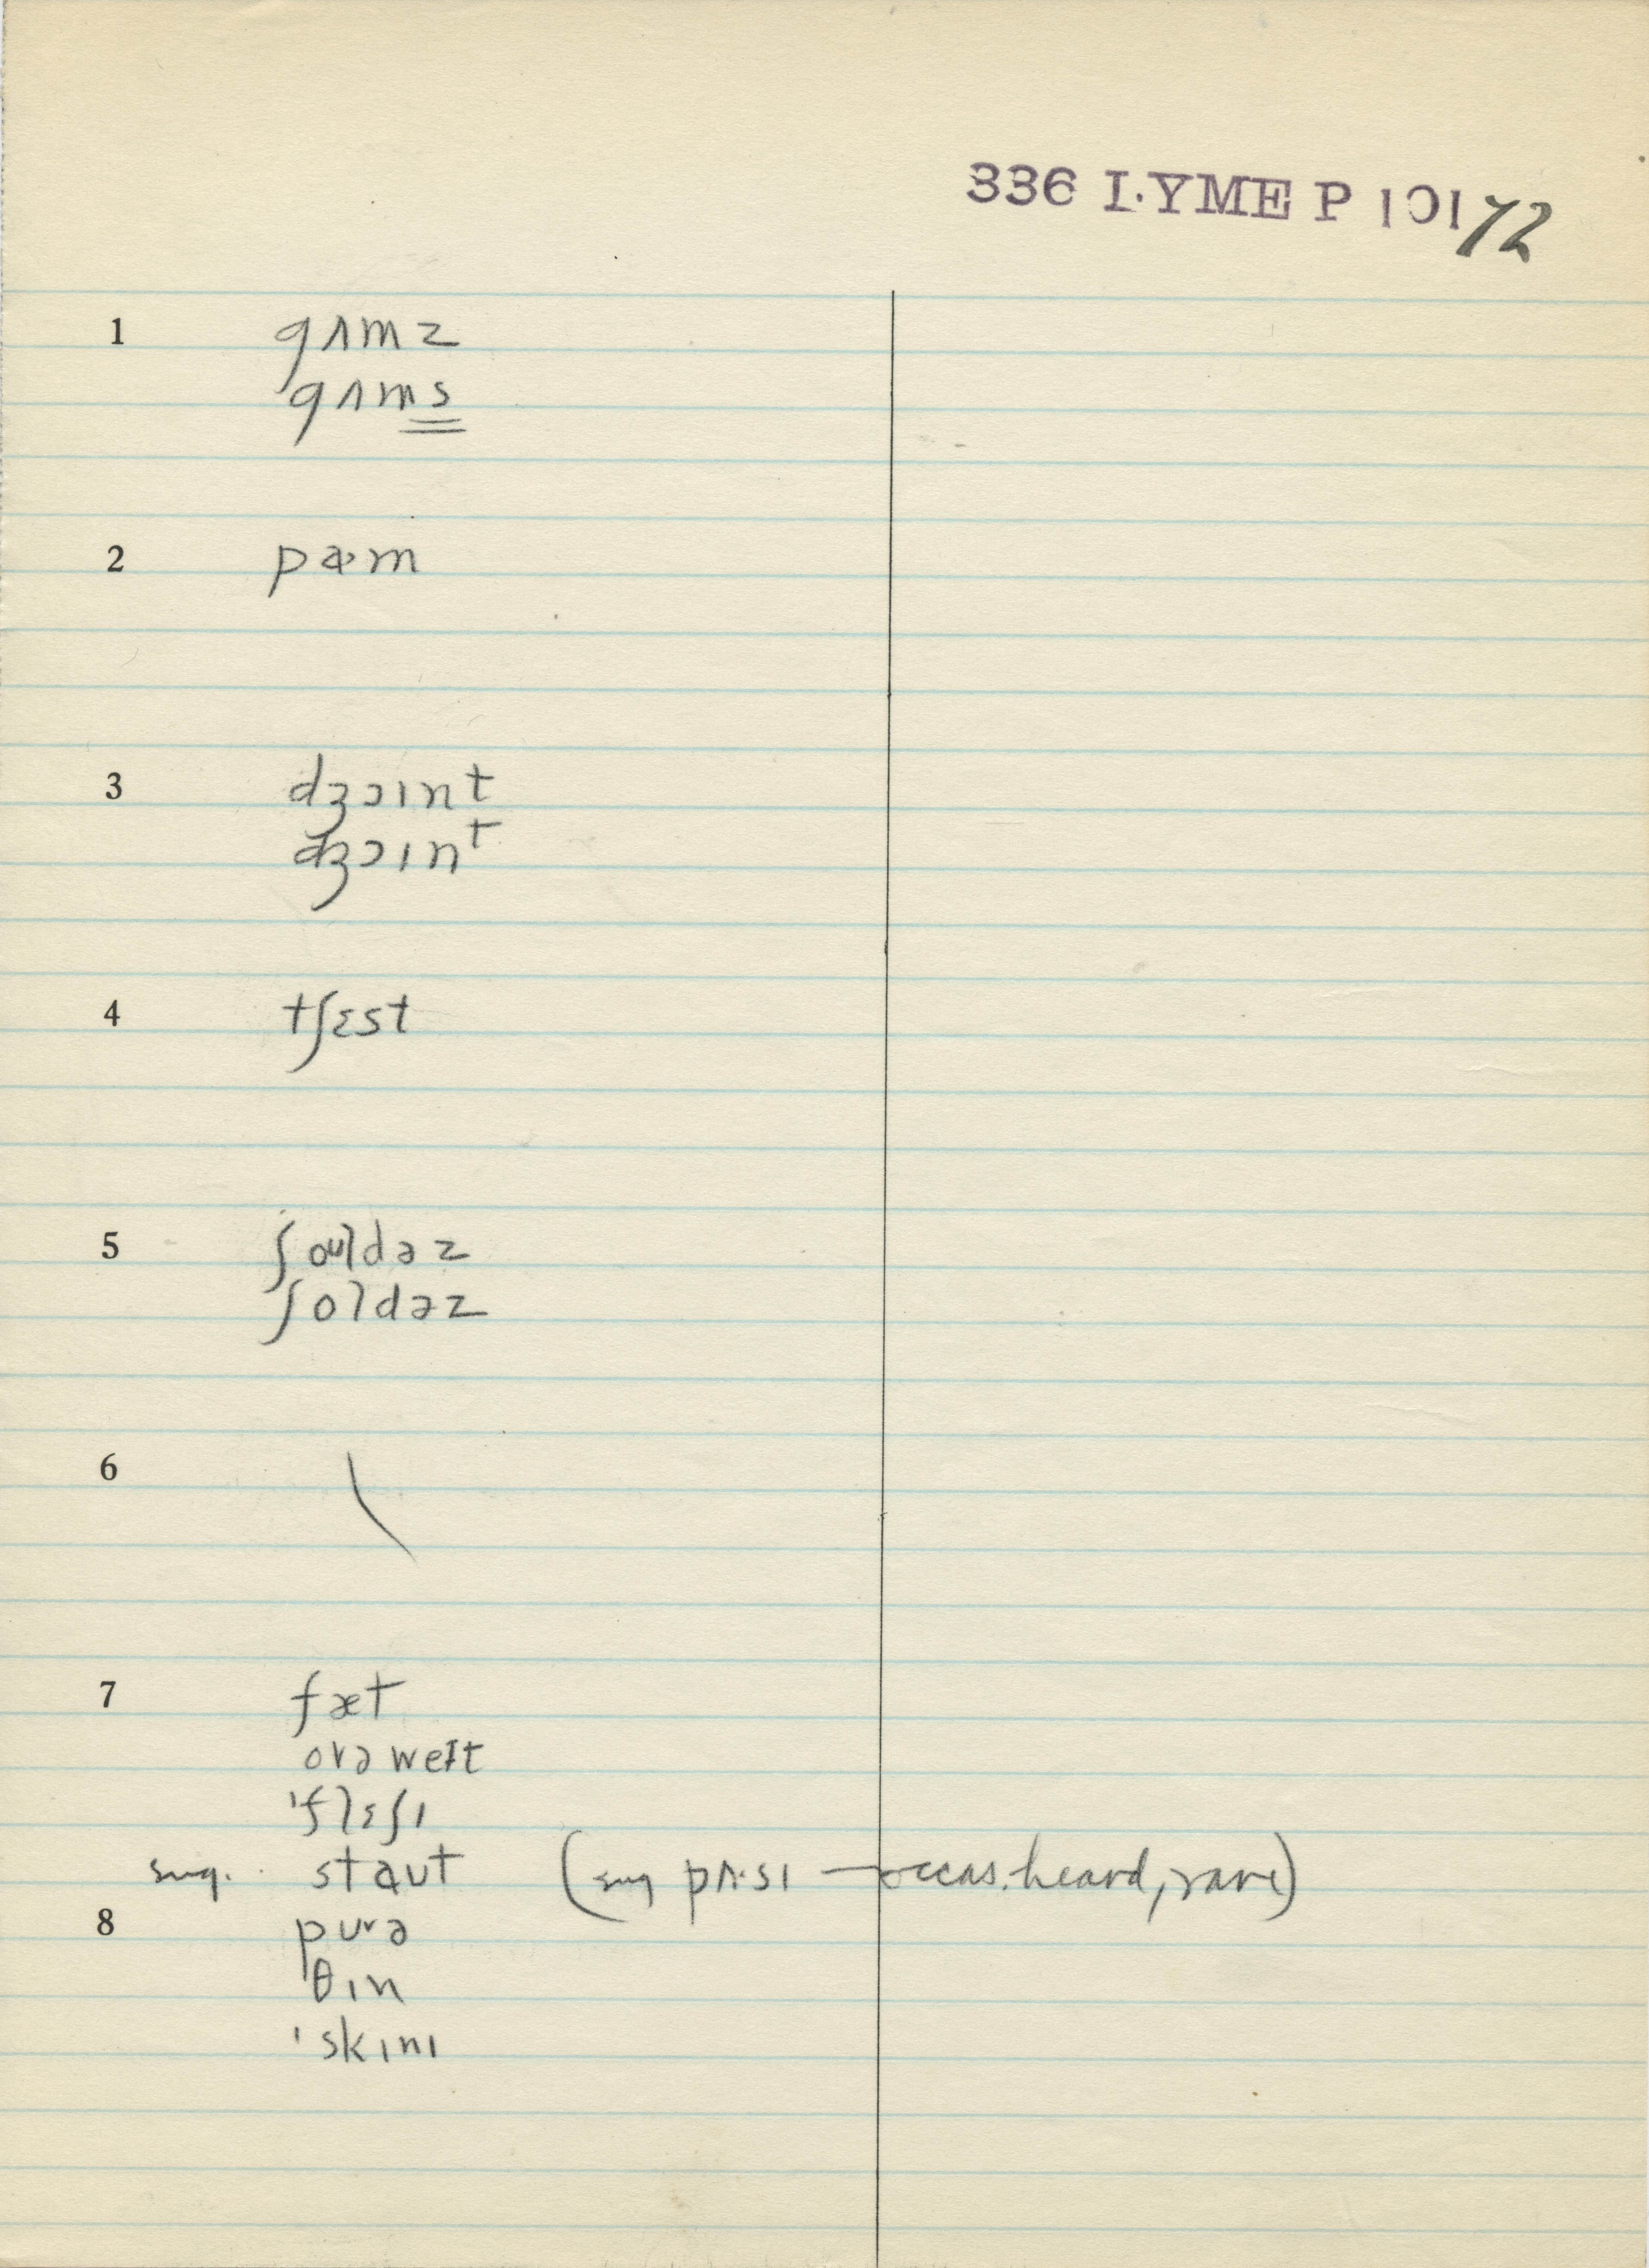 336 LYME P 10172
1 gʌmz
gʌms
2 pɑ·m
3 dʒɔɪnt
dʒɔɪnᵗ
4 tʃɛst
5 ʃoʊldəz
ʃoldəz
6
7 fæt
ovə weɪt
'flɛʃɪ
sug. staʊt (sug pʌ·sɪ — occas. heard, rare)
8 pʊrə
θɪn
'skɪnɪ